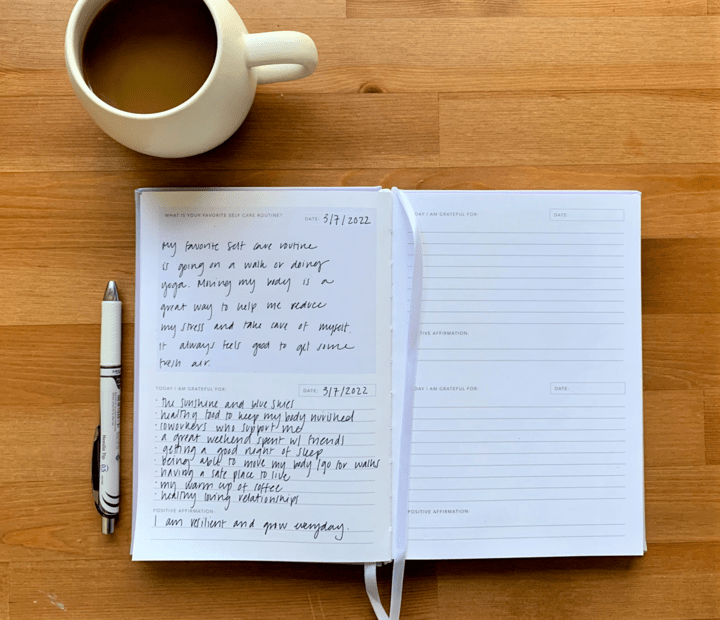 WHAT IS YOUR FAVORITE SELF CARE ROUTINE?
DATE: 3/7/2022
My favorite self care routine
is going on a walk or doing
yoga. Moving my body is a
great way to help me reduce
my stress and take care of myself.
It always feels good to get some
fresh air.
TODAY I AM GRATEFUL FOR:
DATE: 3/7/2022
· the sunshine and blue skies
· healthy food to keep my body nurished
· coworkers who support me
· a great weekend spent w/ friends
· getting a good night of sleep
· being able to move my body / go for walks
· having a safe place to live
· my warm cup of coffee
· healthy loving relationships
POSITIVE AFFIRMATION:
I am resilient and grow everyday.
DAY I AM GRATEFUL FOR:
DATE:
TIVE AFFIRMATION:
DAY I AM GRATEFUL FOR:
DATE:
POSITIVE AFFIRMATION:
Needle Tip 0.5